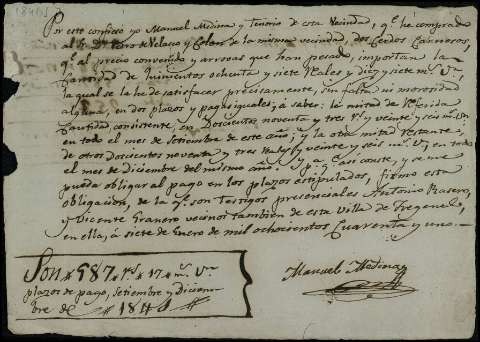 Por este confieso yo Manuel Medina y Tenorio de esta Vecindad, q.e he comprado
al Sr. Dn. Pedro de Velasco y Colon de la misma vecindad, dos Cerdos Carniceros,
q.e al precio convenido y arrovas que han pesado, importan la
Cantidad de Quinientos ochenta y siete Reales y diez y siete m.s V.n
la qual se la he de satisfacer precisamente, sin falta ni morosidad
alguna, en dos plazos y pagas iguales; á saber: la mitad de Referida
Cantidad, consistente, en Doscientos noventa y tres r.s y veinte y seis m.s V.n
en todo el mes de Setiembre de este año; y la otra mitad restante,
de otros Doscientos noventa y tres reales y veinte y seis m.s V.n en todo
el mes de diciembre del mismo año. Y p.a q.e asi conste, y se me
pueda obligar al pago en los plazos estipulados, firmo esta
obligacion, de la q.e son testigos presenciales Antonio Rasero,
y Vicente Granero vecinos tambien de esta Villa de Fregenal,
en ella, á siete de Enero de mil ochocientos Cuarenta y uno.
Son 587 r.s 17 m.s V.n
plazos de pago, setiembre y Diciem-
bre de 1841
Manuel Medina